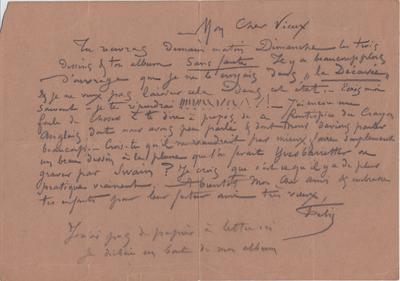 Mon Cher Vieux
Tu recevras Demain matin Dimanche les trois
dessins & ton album Sans faute. Il y a beaucoup plus
d'ouvrage que je ne le croyais dans "la
& je ne veux pas laisser cela Dans cet état. Ecris moi
souvent & je te répondrai !!!!!!! J'ai encore une
foule de Choses à te dire à propos de du Crayon
Anglais dont nous avons peu parlé & dont nous devions parler
beaucoup. Crois-tu qu'il ne vaudrait pas mieux faire simplement
un beau dessin à la plume que l'on ferait ou
graver par Swain? Je crois que c'est ce qu'il y a de plus
pratique vraiment. A bientôt Mon cher Amis & embrasse
tes enfants pour leur futur ami très vieux,
J'n'ai pas de papier à lettre ici
Je déchire un bout de mon album